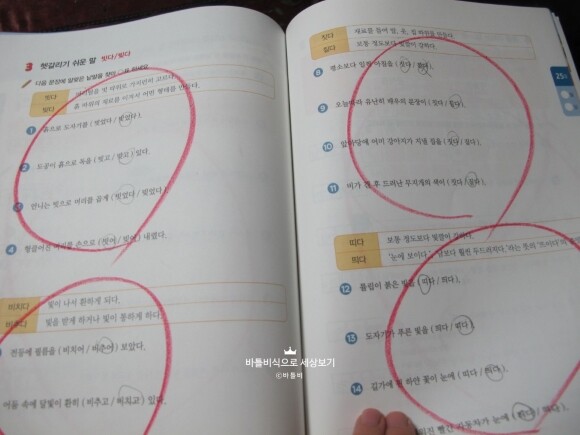 3 헷갈리기 쉬운 말 빗다/빚다
다음 문장에 알맞은 낱말을 찾아
빗다
빚다 흙 따위의 재료를 이겨서 어떤 형태를 만들다.
1 흙으로 도자기를 ( 빗었다 / 빚었다 ).
2 도공이 흙으로 독을 ( 빗고 / 빚고 ) 있다.
3 언니는 빗으로 머리를 곱게 ( 빗었다 / 빚었다 ).
4 헝클어진 머리를 손으로 ( 빗어 / 빚어 ) 내렸다.
비치다 빛이 나서 환하게 되다.
비추다 빛을 받게 하거나 빛이 통하게 하다.
전등에 필름을 ( 비치어 / 비추어 ) 보았다.
어둠 속에 달빛이 환히 ( 비추고 / 비치고 ) 있다.
짓다 재료를 들여 밥, 옷, 집 따위를 만들다.
짙다 보통 정도보다 빛깔이 강하다.
8 평소보다 일찍 아침을 ( 짓다 / 짙다 ).
9 오늘따라 유난히 배우의 분장이 ( 짓다 / 짙다 ).
10 앞마당에 어미 강아지가 지낼 집을 ( 짓다 / 짙다 ).
11 비가 갠 후 드러난 무지개의 색이 ( 짓다 / 짙다 ).
25
띠다
띄다 '눈에 보이다', '남보다 훨씬 두드러지다.'라는 뜻의
12 튤립이 붉은 빛을 ( 띠다 / 띄다 ).
13 도자기가 푸른 빛을 ( 띄다 / 띠다 ).
14 길가에 핀 하얀 꽃이 눈에 ( 띠다 / 띄다 ).
빨간 자동차가 눈에
바틀비식으로 세상보기
©바틀비